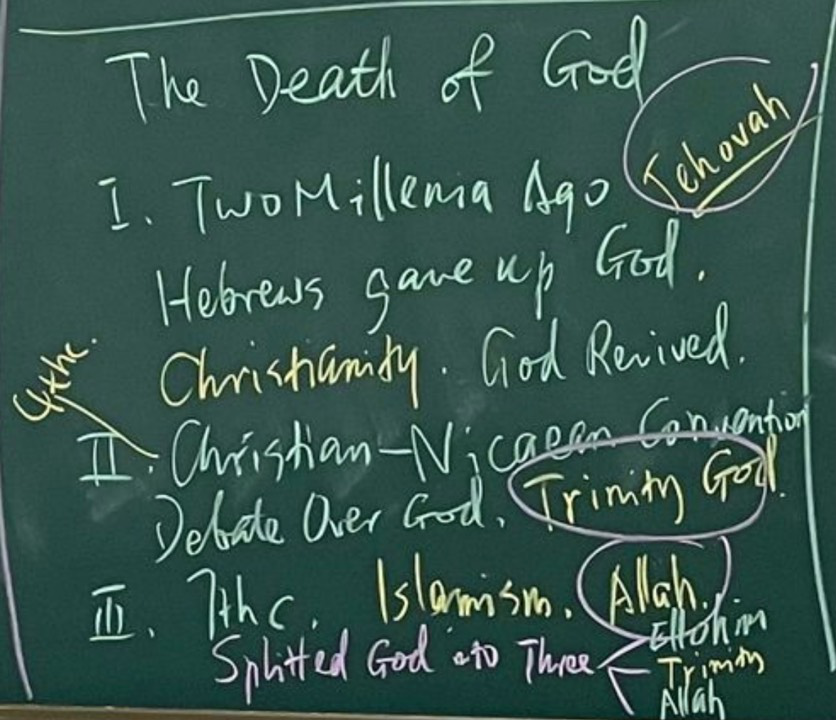 The Death of God
Jehovah
I. Two Millenia Ago
Hebrews gave up God.
Christianity. God Revived.
4thc.
II. Christian-Nicaean Convention
Debate Over God. Trinity God.
III. 7thc. Islamism. Allah.
Splitted God into Three
Ellohim
Trinity
Allah